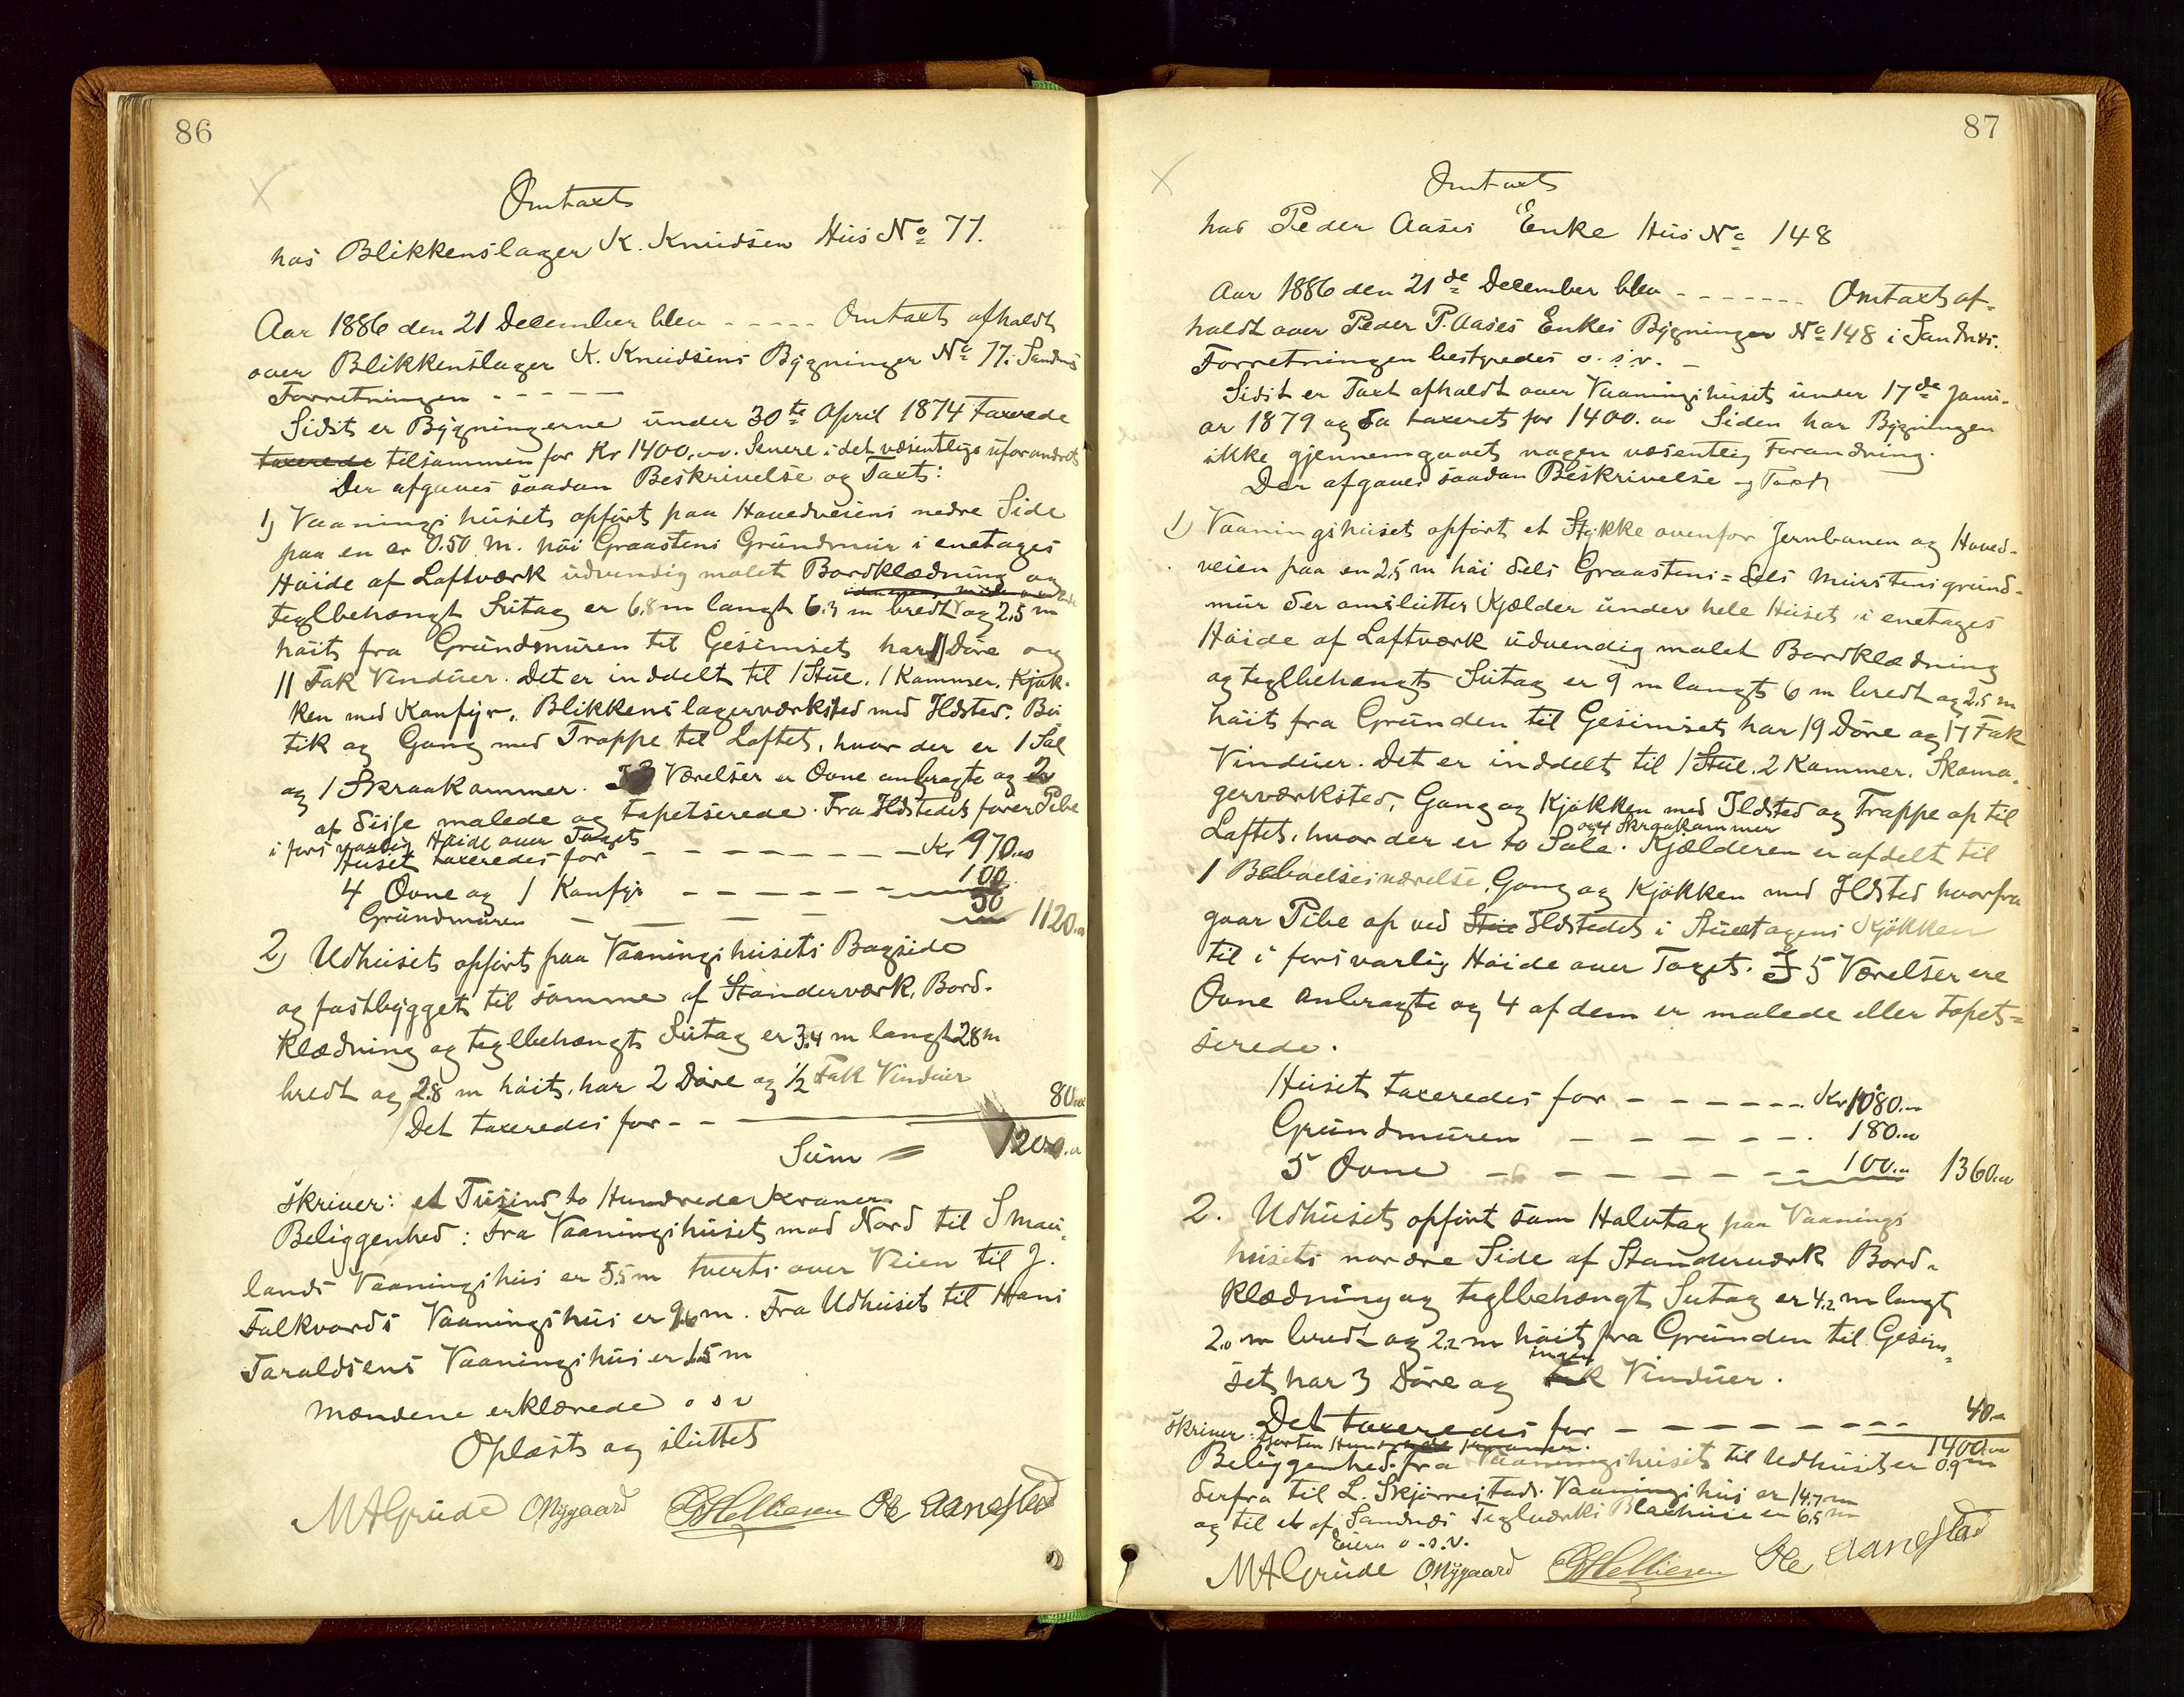 86
Omtaxt
hos Blikkenslager K. Knudsen Hus No 77.
Aar 1886 den 21 December blev - - - - - Omtaxt afholdt
over Blikkenslager K. Knudsens Bygninger No 77 i Sandnes
Forretningen - - - - -
Sidst er Bygningerne under 30te April 1874 taxerede
taxerede tilsammen for Kr 1400.00. Senere i det væsentlige uforandret
Der afgaves saadan Beskrivelse og Taxt:
1) Vaaningshuset opført paa Hovedveiens nedre Side
paa en er 0.50 m. høi Graastens Grundmur i enetages
Høide af Laftværk udvendig malet Bordklædning og
teglbehængt Sutag er 6.8 m langt 6.3 m bredt og 2.5 m
høit fra Grundmuren til Gesimset har 11 Døre og
11 Fak Vinduer. Det er inddelt til 1 Stue, 1 Kammer, Kjøk-
ken med Komfyr, Blikkenslagerværksted med Ildsted, Bu
tik og Gang med Trappe til Loftet, hvor der er 1 Sal
og 1 Skraakammer. I 3 Værelser er Ovne anbragte og 2
af disse malede og tapetserede. Fra Ildstedet fører Pibe
i forsvarlig Høide over Taget
Huset taxeredes for - - - - - - - Kr 970.00
4 Ovne og 1 Komfyr - - - - - - 100
Grundmuren - - - - 50 1120.00
2) Udhuset opført paa Vaaningshusets Bagside
og fastbygget til samme af Standerværk, Bord-
klædning og teglbehængt Sutag er 3.4 m langt 2.8 m
bredt og 2.8 m høit, har 2 Døre og 1/2 Fak Vinduer
Det taxeredes for - - 80.00
Sum = 1200.00
Skriver: et Tusind to Hundrede Kroner
Beliggenhed: Fra Vaaningshuset mod Nord til Smau-
lands Vaaningshus er 5.5 m tverts over Veien til J.
Falkvords Vaaningshus er 9.6 m. Fra Udhuset til Hans
Taraldsens Vaaningshus er 1.5 m
Mændene erklærede o s v
Oplæst og sluttet
M A Grude O Nygaard G Hellliesen Ole Aanestad
87
Omtaxt
hos Peder Aases Enke Hus No 148
Aar 1886 den 21de December blev - - - - - - - Omtaxt af-
holdt over Peder P. Aases Enkes Bygninger No 148 i Sandnes.
Forretningen bestyredes o. s. v. -
Sidst er Taxt afholdt over Vaaningshuset under 17de Janu-
ar 1879 og da taxeret for 1400.00 Siden har Bygningen
ikke gjennemgaaet nogen væsentlig Forandring.
Der afgaves saadan Beskrivelse og Taxt
1) Vaaningshuset opført et Stykke ovenfor Jernbanen og Hoved-
veien paa en 2.5 m høi dels Graastens = dels Murstensgrund-
mur der omslutter Kjælder under hele Huset, i enetages
Høide af Laftværk udvendig malet Bordklædning
og teglbehængt Sutag er 9 m langt 6 m bredt og 2.5 m
høit fra Grunden til Gesimset har 19 Døre og 17 Fak
Vinduer. Det er inddelt til 1 Stue, 2 Kammer, Skoma-
gerværksted, Gang og Kjøkken med Ildsted og Trappe op til
Loftet, hvor der er to Sale. og 4 Skraakammer Kjælderen er afdelt til
1 Beboelsesværelse, Gang og Kjøkken med Ildsted hvorfra
gaar Pibe op ved Stue Ildstedet i Stuetagens Kjøkken
til i forsvarlig Høide over Taget. I 5 Værelser ere
Ovne anbragte og 4 af dem er malede eller tapet=
serede.
Huset taxeredes for - - - - - - Kr 1080.00
Grundmuren - - - - - - 180.00
5 Ovne - - - - - - - - 100.00 1360.00
2. Udhuset opført som Halvtag paa Vaanings
husets nordre Side af Standerværk Bord-
klædning og teglbehængt Sutag er 4.2 m langt
2.0 m bredt og 2.2 m høit fra Grunden til Gesim-
set har 3 Døre og ingen Fak Vinduer.
Det taxeredes for - - - - - - - - 40.00
Skriver: fjorten Hundrede Kroner. 1400.00
Beliggenhed fra Vaaningshuset til Udhuset er 0.9 m
derfra til L. Skjørrestads Vaaningshus er 14.7 m
og til et af Sandnes Teglværks Blaehuse er 6.5 m
Eieren o. s. v.
M A Grude O Nygaard G Hellliesen Ole Aanestad